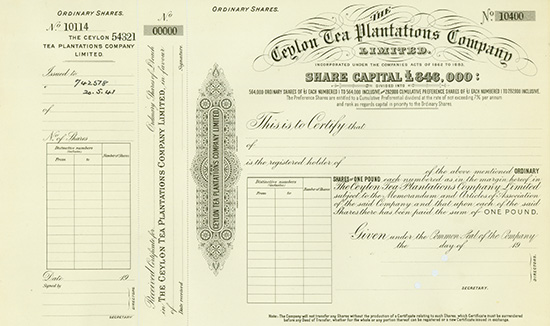 ORDINARY SHARES.
No 10114
THE CEYLON 54321
TEA PLANTATIONS COMPANY
LIMITED.
Issued to
742578
20.5.41
of
No. of Shares
Distinctive numbers
(Inclusive)
Number of Shares
From
to
Date
19
Signed by
DIRECTORS.
SECRETARY.
No
00000
Received Certificate for Ordinary Shares of £1 each
in THE CEYLON TEA PLANTATIONS COMPANY LIMITED, in favour of
Signature
Date received
CEYLON TEA PLANTATIONS COMPANY LIMITED
ORDINARY SHARES.
No 10400
THE
Ceylon Tea Plantations Company
LIMITED.
INCORPORATED UNDER THE COMPANIES ACTS OF 1862 TO 1882.
SHARE CAPITAL £846,000:
DIVIDED INTO
564,000 ORDINARY SHARES OF £1 EACH NUMBERED 1 TO 564,000 INCLUSIVE, AND 282,000 CUMULATIVE PREFERENCE SHARES OF £1 EACH NUMBERED 1 TO 282,000 INCLUSIVE.
The Preference Shares are entitled to a Cumulative Preferential dividend at the rate of not exceeding 7% per annum
and rank as regards capital in priority to the Ordinary Shares
This is to Certify that
of
is the registered holder of
of the above mentioned ORDINARY
SHARES OF ONE POUND each numbered as in the margin hereof in
The Ceylon Tea Plantations Company Limited
subject to the Memorandum and Articles of Association
of the said Company and that upon each of the said
Shares there has been paid the sum of ONE POUND.
Distinctive numbers
(Inclusive)
Number of Shares
From
to
Given under the Common Seal of the Company
the day of 19
DIRECTORS.
SECRETARY.
Note:- The Company will not transfer any Shares without the production of a Certificate relating to such Shares, which Certificate must be surrendered
before any Deed of Transfer, whether for the whole or any portion thereof can be registered or a new Certificate issued in exchange.